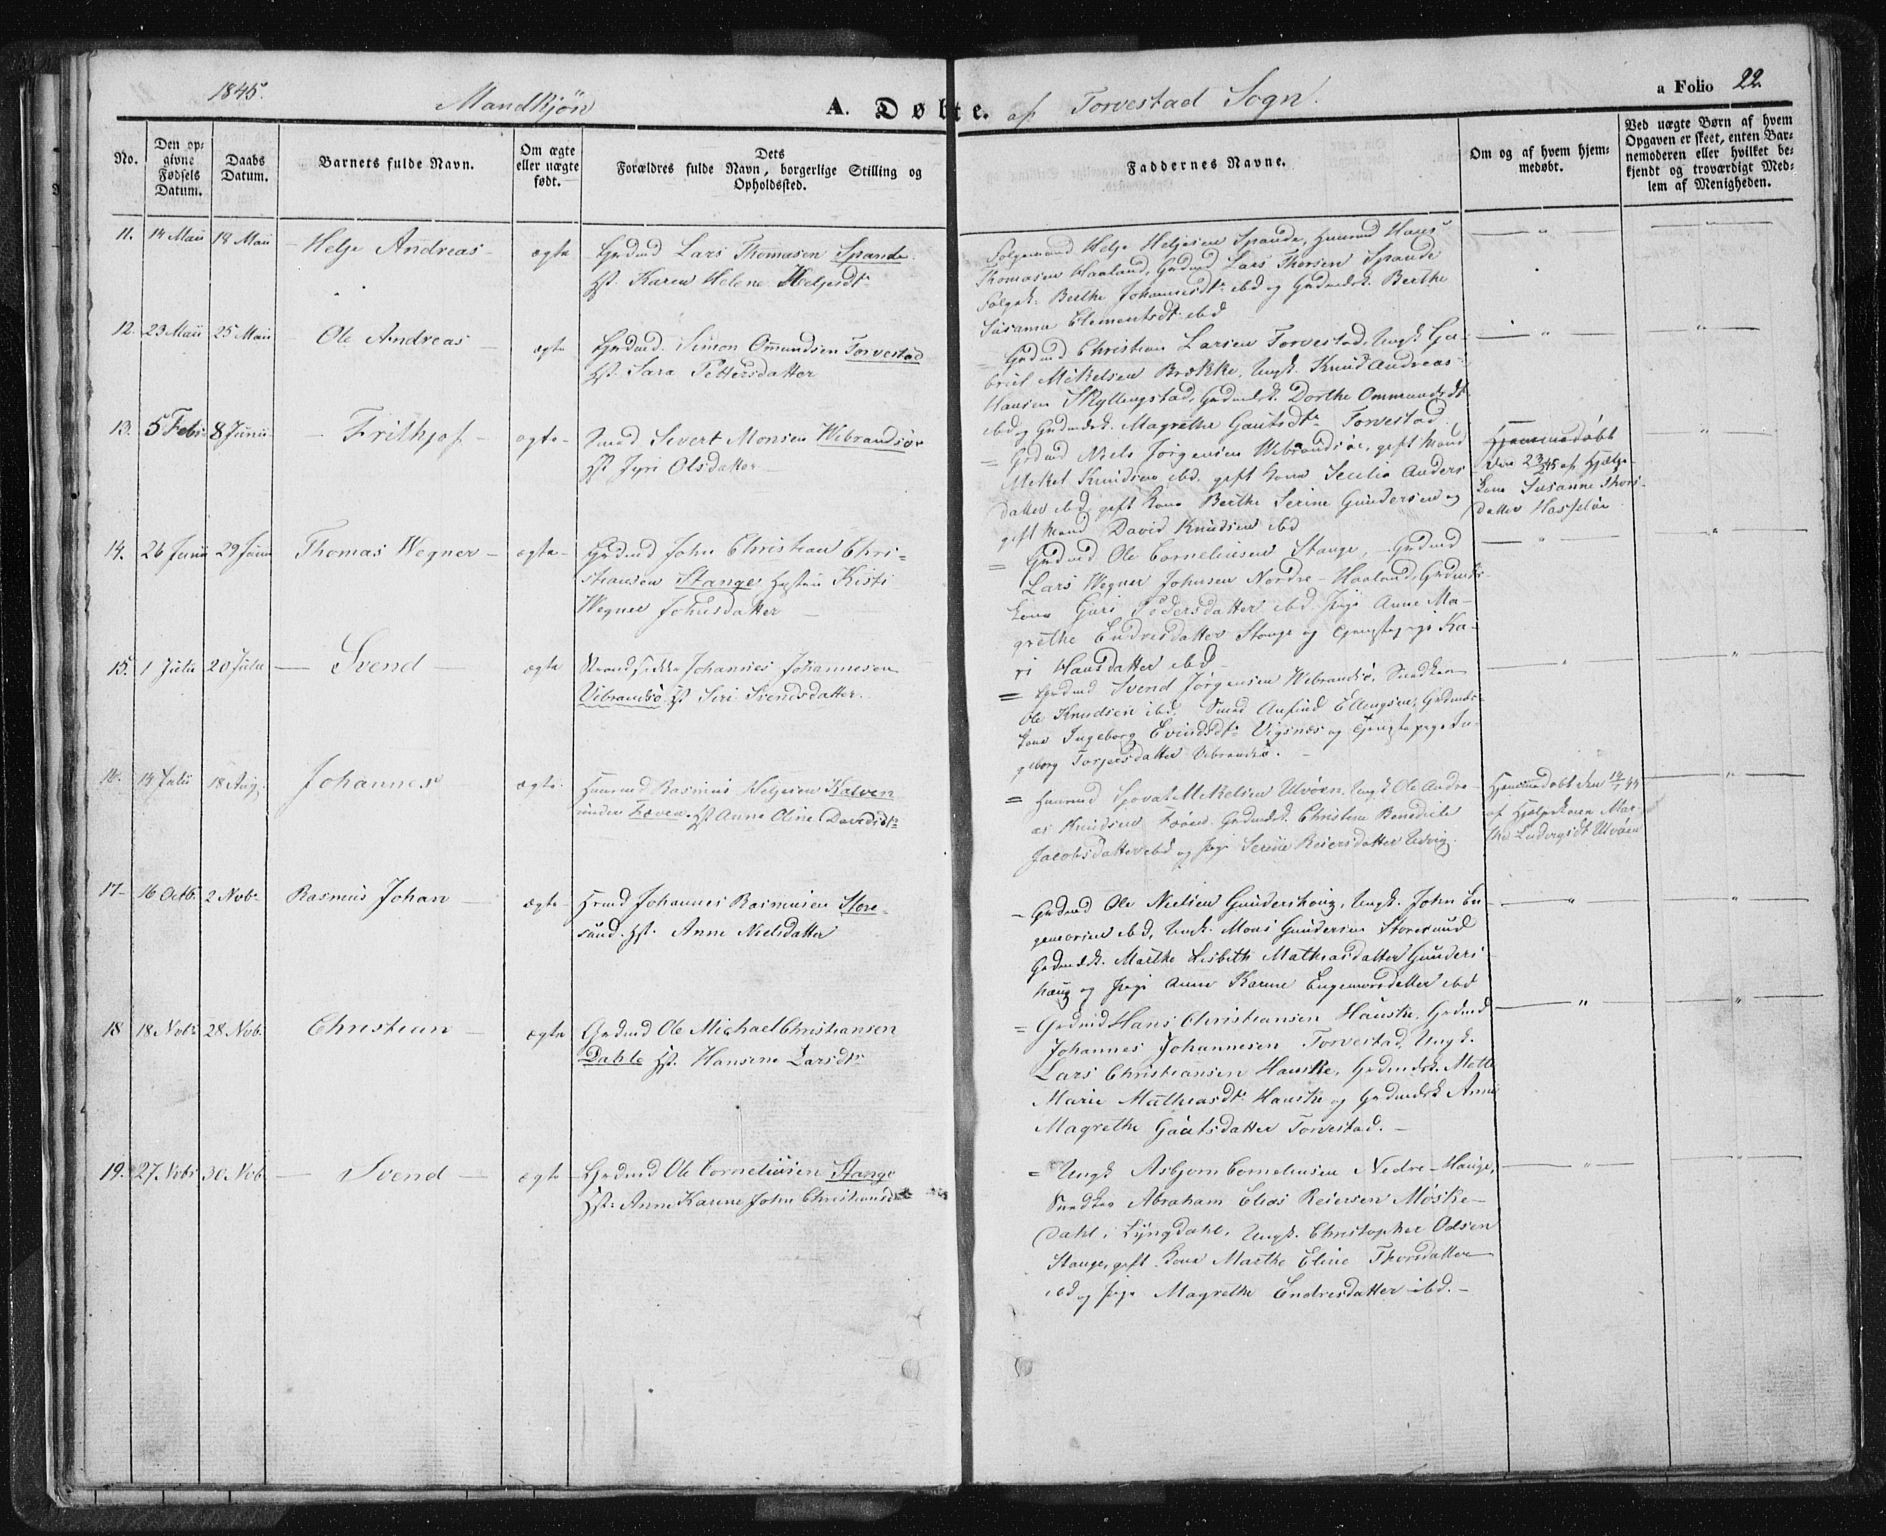 1845.
Mandkjøn
A. Døbte.
af Torvestad Sogn.
a Folio 22.
No.
Den op-
givne
Fødsels
Datum.
Daabs
Datum.
Barnets fulde Navn.
Om ægte
eller uægte
født.
Dets
Forældres fulde Navn, borgerlige Stilling og
Opholdssted.
Faddernes Navne.
Om og af hvem hjem-
medøbt.
Ved uægte Børn af hvem
Opgaven er skeet, enten Bar-
nemoderen eller hvilket be-
kjendt og troværdigt Med-
lem af Menigheden.
11. 14 Maii 18 Maii Helje Andreas ægte Grdmd Lars Thomasen Spande
Hst Karen Helene Heljesdtr
Helje Heljesen Spande, Huusmd Hans
Thomasen Haaland, Grdmd Lars Thorsen Spande
Berthe Johannesdtr ibd og Grdmdsk. Berthe
Susanna Clementsdt ibd
12. 23 Maii 25 Maii Ole Andreas ægte Grdmd. Simon Ommundsen Torvestad
Hst. Sara Pettersdatter
= Grdmd Christian Larsen Torvestad, Ungk Ga-
briel Mikelsen Brække, Ungk. Knud Andreas
Hansen Skyllingstad, Grdmdsk. Dorthe Ommundsdt
ibd og Grdmdsk. Magrethe Gautsdtr Torvestad.
13. 5 Febr 8 Junii Frithjof ægte Smed Sivert Monsen Wibrandsøe
Hst Jyri Olsdatter
= Grdmd Niels Jørgensen Wibrandsøe, gift Mand
Mikel Knudsen ibd. gift Kone Secilia Anders
datter ibd, gift Kone Berthe Serine Gundersen og
gift Mand David Knudsen ibd
Hjemmedøbt
den 23/2 45 af Hjælpe-
kone Susanne Thors-
datter Hasseløe
14. 26 Junii 29 Junii Thomas Wegner ægte Grdmd John Christian Chri-
stiansen Stange Hustru Kisti
Wegner Johnsdatter
= Grdmd Ole Corneliusen Stange, Grdmd
Lars Wegner Johnsen Nordre-Haaland, Grdmds-
kone Guri Pedersdatter ibd. Pige Anne Ma-
grethe Endresdatter Stange og Tjenstepige Ka-
ri Hansdatter ibd
15. 1 Julii 20 Julii Svend ægte Strandsidder Johannes Johannesen
Vibrandsø Hst Siri Svendsdatter.
= Grdmd Svend Jørgensen Wibrandsø, Snedker
Ole Knudsen ibd. Smed Anfind Ellingsen, Grdmds-
kone Ingeborg Evindsdtr Vigsnæs og Tjenstepige In-
geborg Torjersdatter Vibrandsø.
16. 14 Julii 18 Aug. Johannes ægte Huusmd Rasmus Heljesen Kalven
under Fæøen. Hst Anne Oline Davidsdtr
= Huusmd Mikelsen Utvøen, Ungk Ole Andre-
as Knudsen Fæøen. Grdmdsk. Christine Benedicte
Jacobsdatter ibd og Pige Serine Reiersdatter
Hjemmedøbt den 14/7 45
af Hjælpekonen Mar-
the Ludvigsdt Utvøen
17. 16 Octb. 2 Nobr. Rasmus Johan ægte Grdmd Johannes Rasmusen Store-
sund. Hst. Anne Nielsdatter
= Grdmd Ole Nielsen Gundershoug, Ungk. John En-
gemorsen ibd, Ungk. Mons Gundersen Storesund
Grdmdsk. Marthe Lisbeth Mathiasdatter Gunders-
haug og Pige Anne Karine Engemorsdatter ibd
18 18 Nobr 28 Nob. Christian ægte Grdmd Ole Michael Christiansen
Dahle Hst. Hansine Larsdtr
= Grdmd Hans Christiansen Hauske, Grdmd
Johannes Johannesen Torvestad, Ungk.
Lars Christiansen Hauske, Grdmdsk. Mette
Marie Mathiasdt Hauske og Grdmdsk Anne
Magrethe Gautsdatter Torvestad.
19. 27 Nobr 30 Nob. Svend ægte Grdmd Ole Corneliusen Stange
Hst. Anne Karine John Christiansdt
= Ungk Asbjørn Corneliusen Nedre-Hauge,
Snedker Abraham Elias Reiersen Møske-
dahl i Lyngdahl, Ungk. Christopher Odsen
Stange, gift Kone Marthe Eline Thorsdatter
ibd og Pige Magrethe Endresdatter ibd.